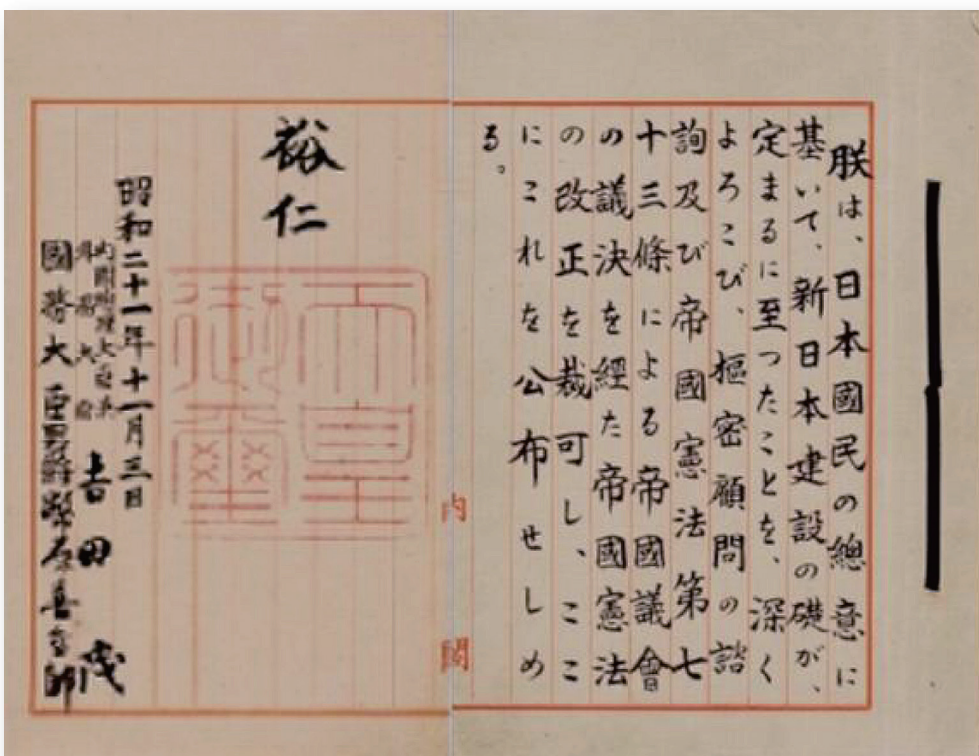 朕は、日本國民の總意に
基いて、新日本建設の礎が、
定まるに至つたことを、深く
よろこび、樞密顧問の諮
詢及び帝國憲法第七
十三條による帝國議會
の議決を經た帝國憲法
の改正を裁可し、ここ
にこれを公布せしめ
る。
内閣
裕仁
天皇
御璽
昭和二十一年十一月三日
内閣總理大臣兼
外務大臣
吉田茂
國務大臣男爵幣原喜重郎